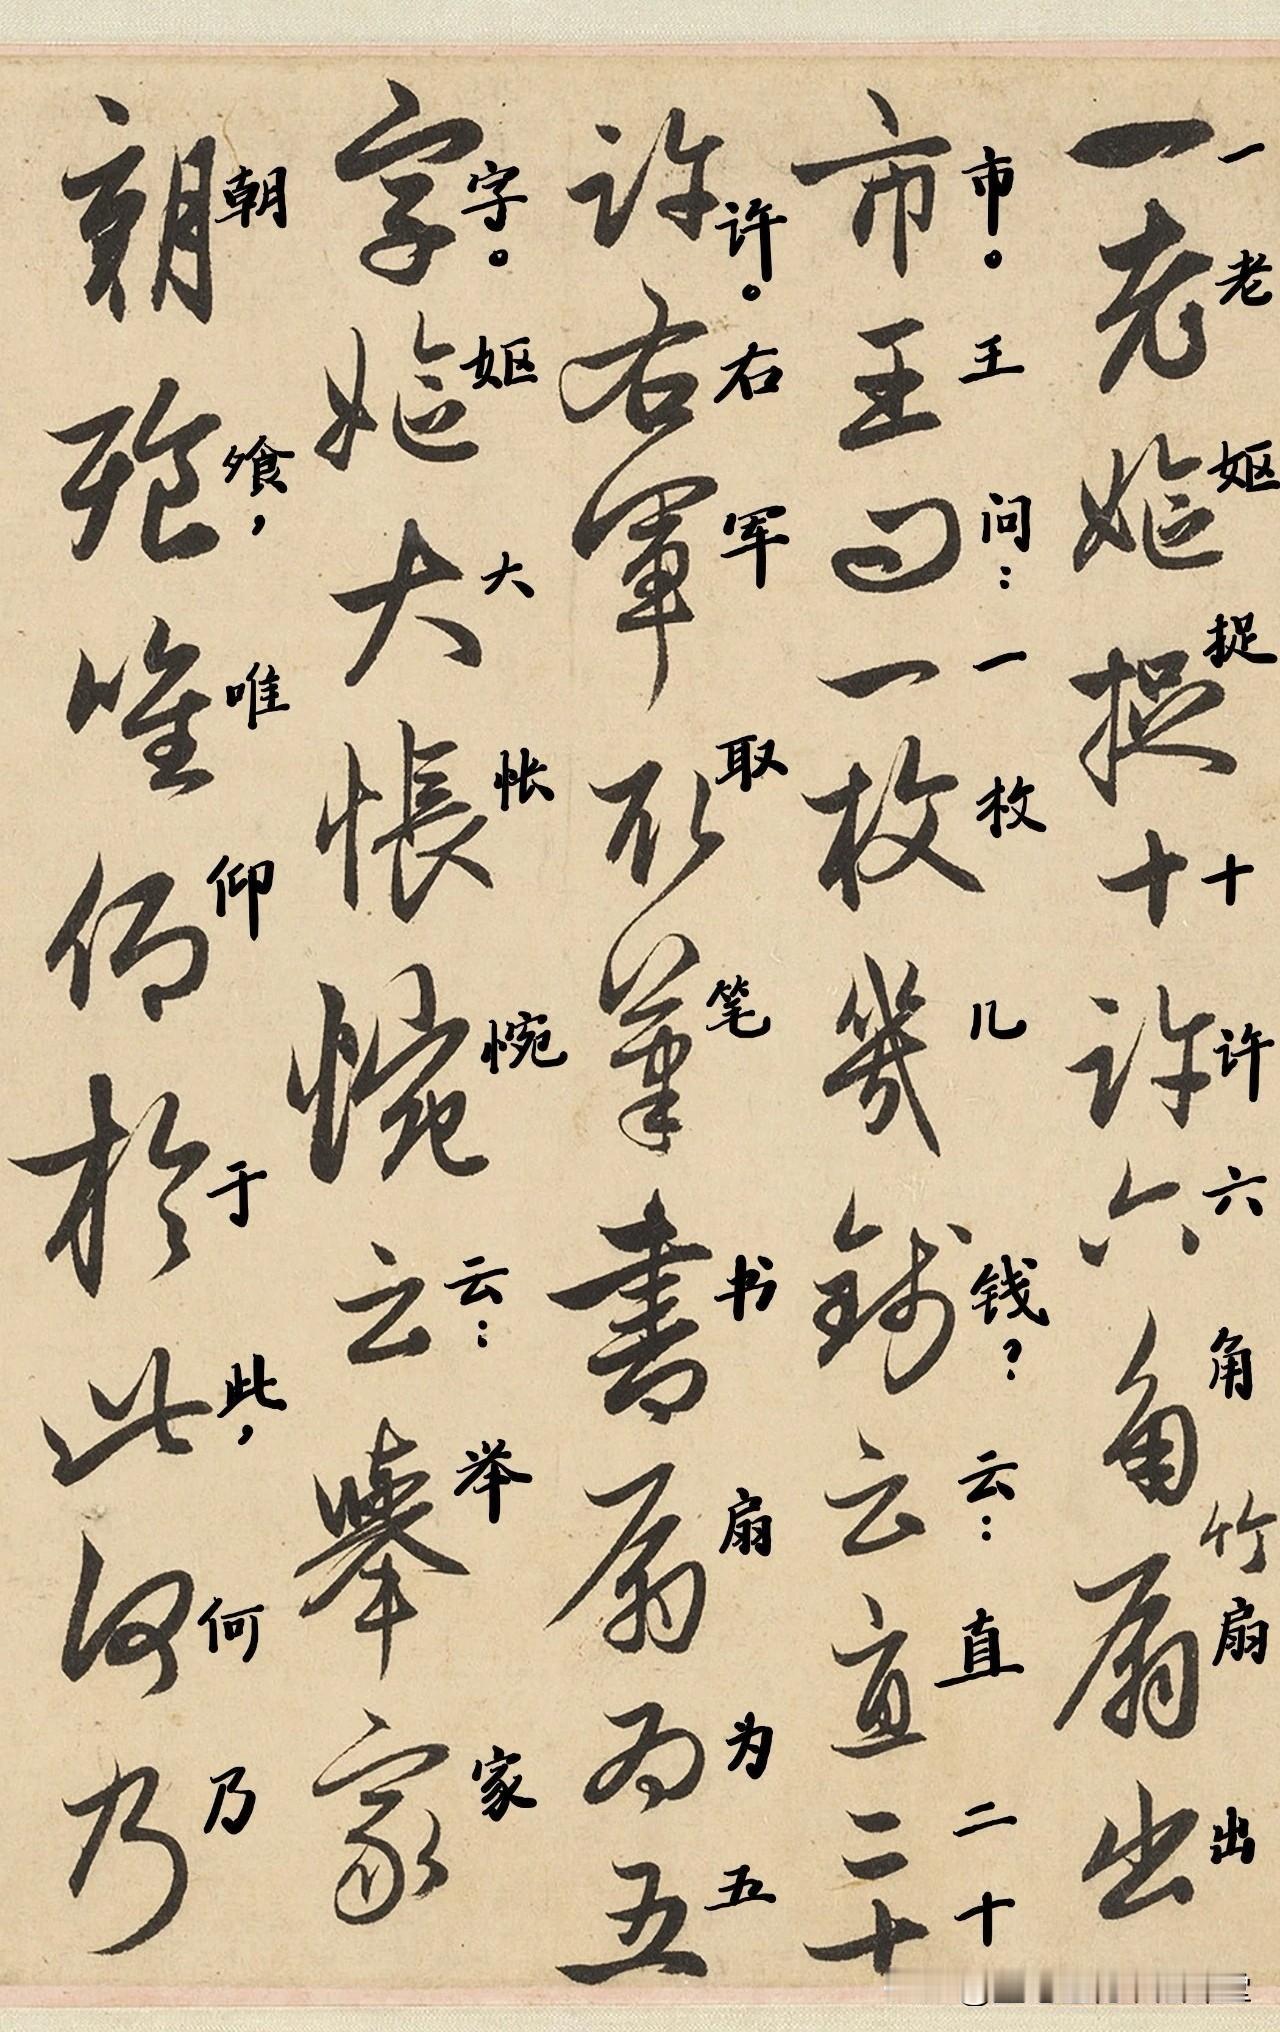 一老妪捉十许六角竹扇出
一老嫗捉十許六角扇出
市。王问：一枚几钱？云：直二十
市王問一枚幾錢云直二十
许。右军取笔书扇为五
許右軍取筆書扇為五
字。妪大怅惋云：举家
字嫗大悵惋云舉家
朝飧，唯仰于此，何乃
朝飱唯仰於此何乃